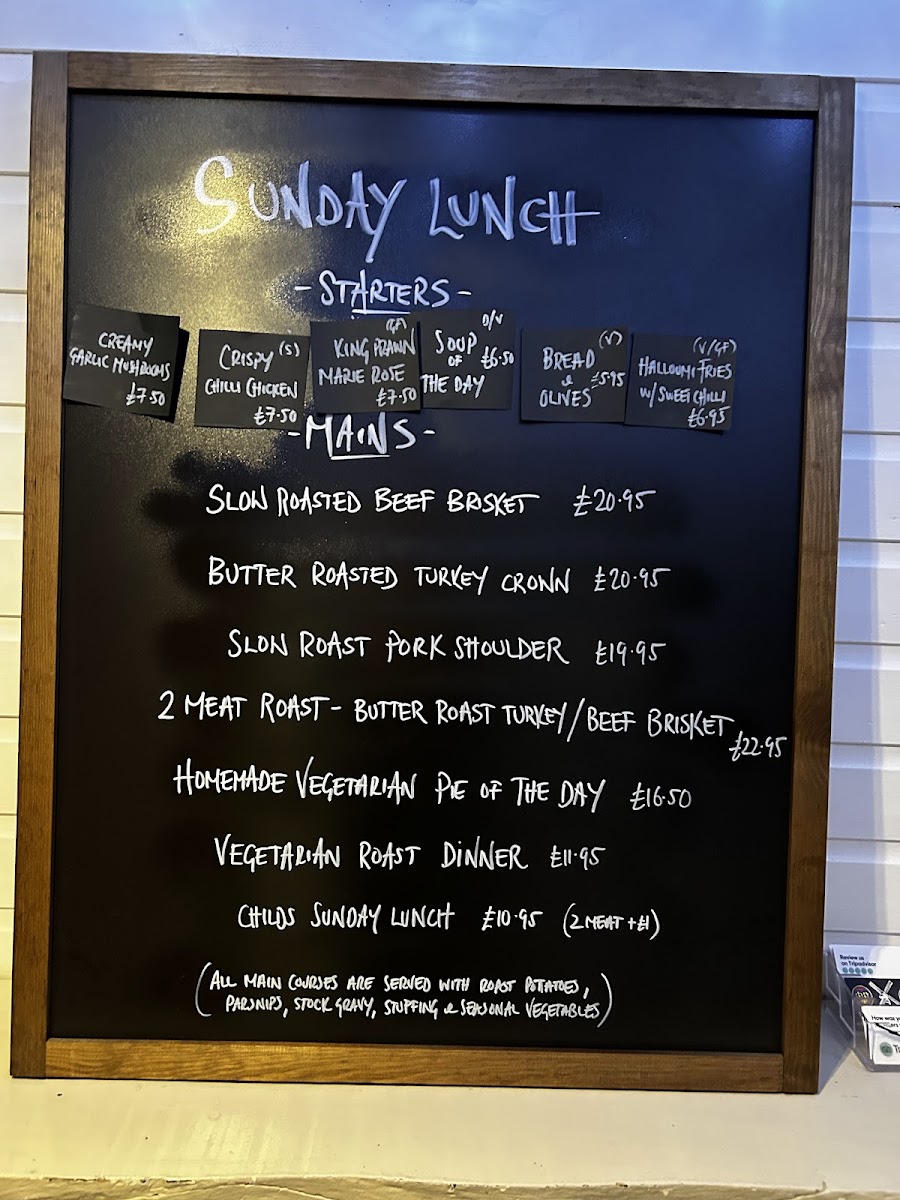 SUNDAY LUNCH
- STARTERS -
CREAMY
GARLIC MUSHROOMS
£7.50
CRISPY (S)
CHILLI CHICKEN
£7.50
(GF)
KING PRAWN
MARIE ROSE
£7.50
V
SOUP
OF £6.50
THE DAY
(V)
BREAD
& £5.95
OLIVES
(V/GF)
HALLOUMI FRIES
W/ SWEET CHILLI
£6.95
- MAINS -
SLOW ROASTED BEEF BRISKET £20.95
BUTTER ROASTED TURKEY CROWN £20.95
SLOW ROAST PORK SHOULDER £19.95
2 MEAT ROAST - BUTTER ROAST TURKEY/BEEF BRISKET
£22.95
HOMEMADE VEGETARIAN PIE OF THE DAY £16.50
VEGETARIAN ROAST DINNER £11.95
CHILDS SUNDAY LUNCH £10.95 (2 MEAT + £1)
(ALL MAIN COURSES ARE SERVED WITH ROAST POTATOES,
PARSNIPS, STOCK GRAVY, STUFFING & SEASONAL VEGETABLES)
Review us
on Tripadvisor
How was